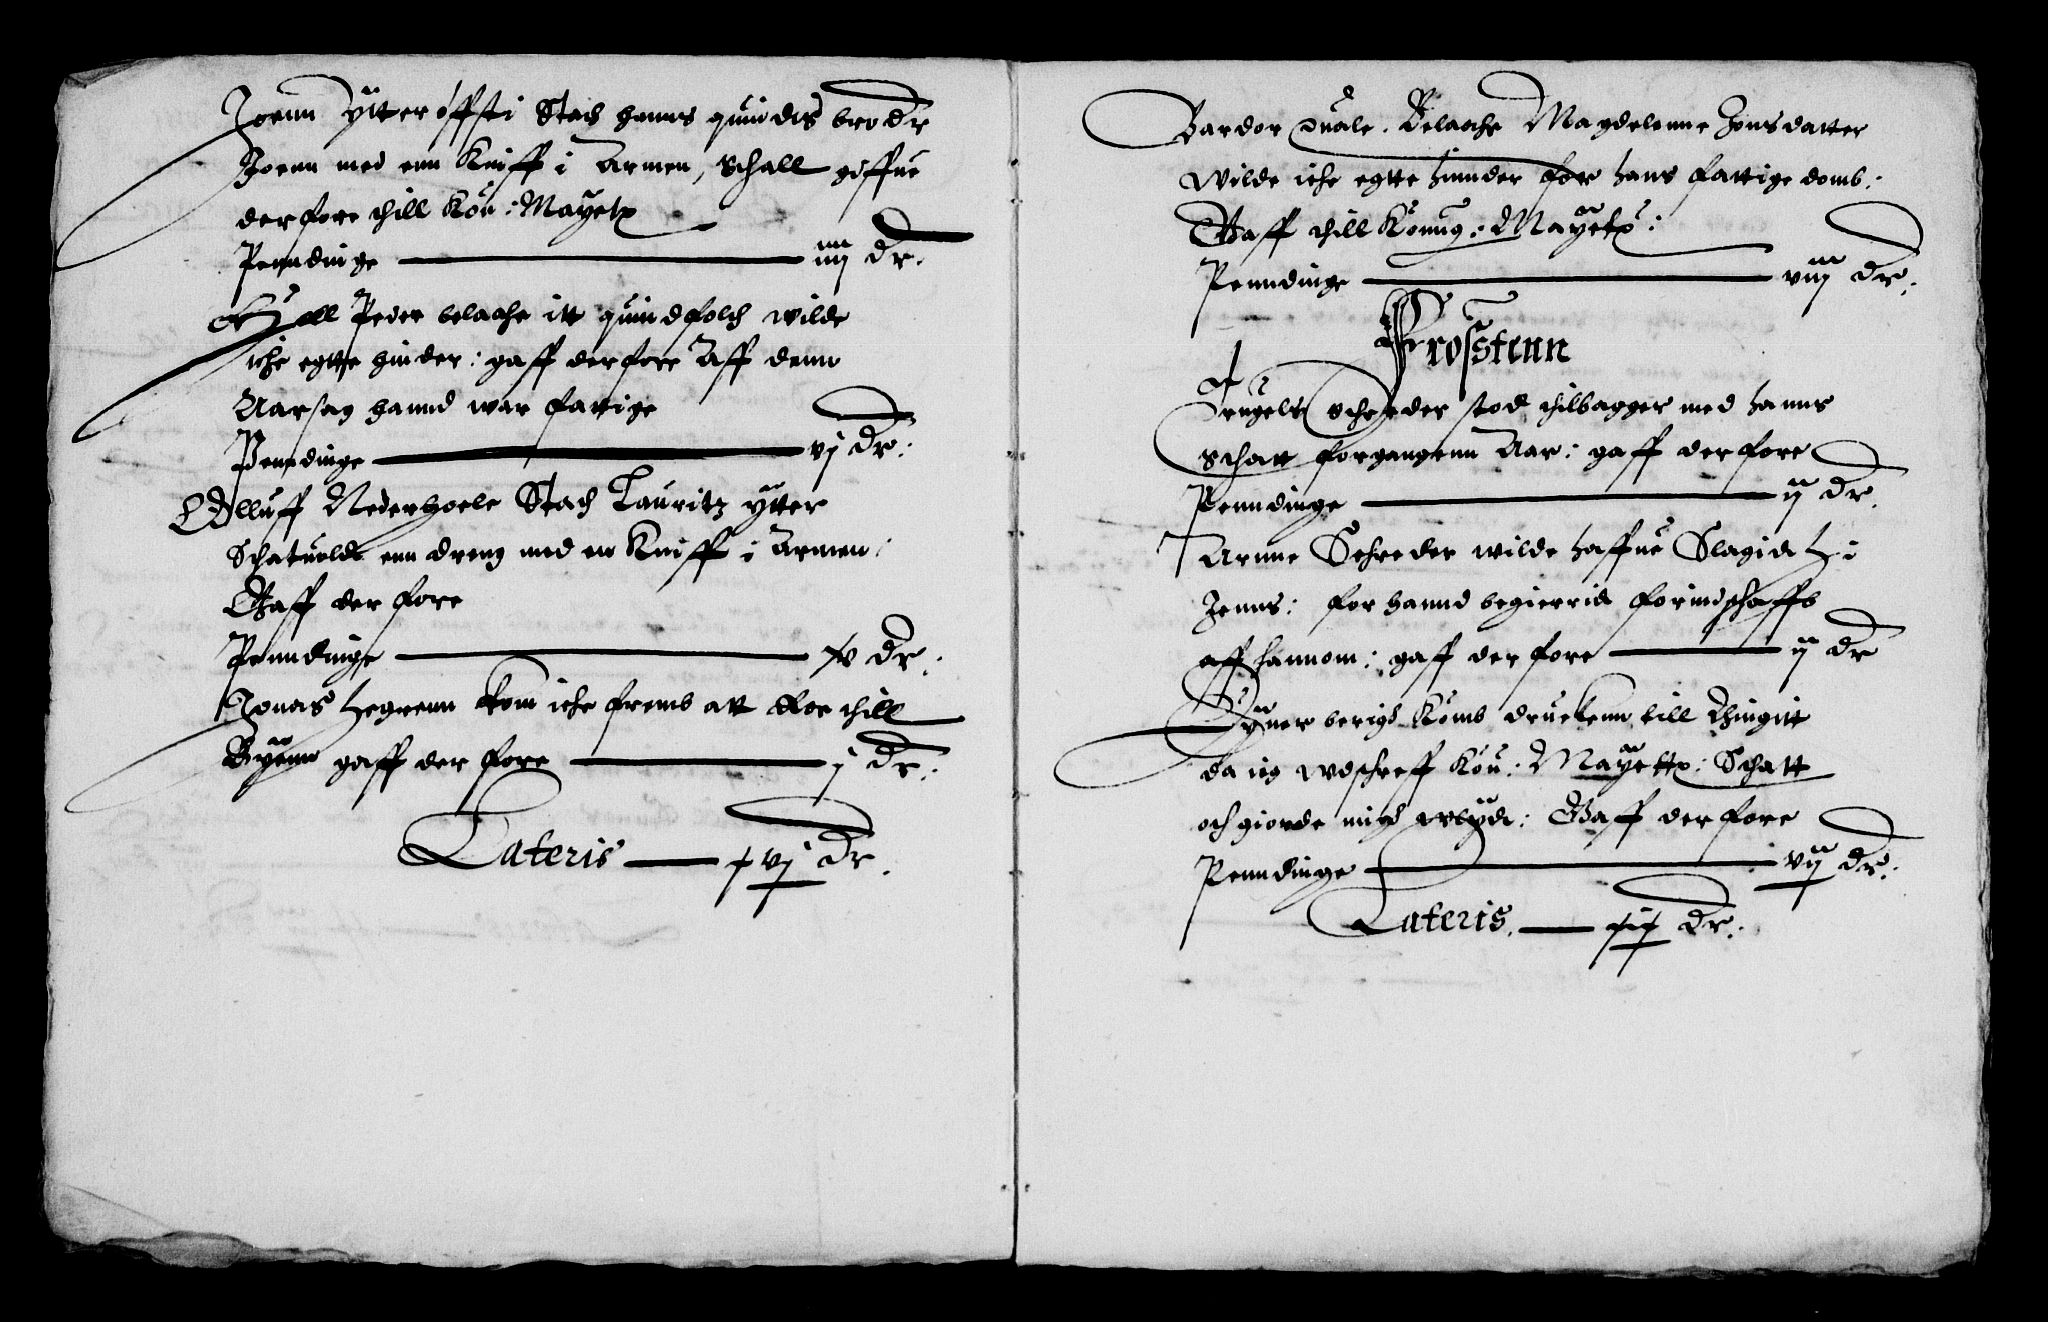 Joenn Ytterøffsti Stach hanns quindis brodr
Joenn med enn Kniff i Armen, Schall giffue
derfore thill Kon: Mayetz
Penndinge — iiij dr.
Kield Peder belaahe itt quindfolch wilde
iche egtte hinder: gaff derfore Aff denn
Aarsag hannd war fattige
Penndinge — vj dr:
Olluff Nederhoele Stach Lauritz ytter
Schatuold enn dreng med en Kniff i Armen:
Gaff der fore
Penndinge — xv dr:
Jonas Hegrenn kom iche fremb att Roe thill
Byenn gaff der fore — j dr:
Lateris — xvj dr.
Bardor Duale. Belaahe Magdelenne Jonsdatter
wilde iche egtte hinnder for hans fattige domb:
Gaff thill Konng: Mayetz:
Penndinge — viij dr:
Frosstenn
Trugels Schreder stod thilbagger med hanns
Schatt forgangenn Aar: gaff derfore
Penndinge — ij dr.
Arnne Schreder wilde haffue Slagidt H: i
Jenns: for hannd begierrid forindschaffb
aff hannom: gaff der fore — ij dr
Eyner berigs Komb druckenn till Thingitt
da ieg wdschreff Kon: Mayettz: Schatt
och giorde migh wlyde: Gaff derfore
Penndinge — vij dr:
Lateris. — xix dr: